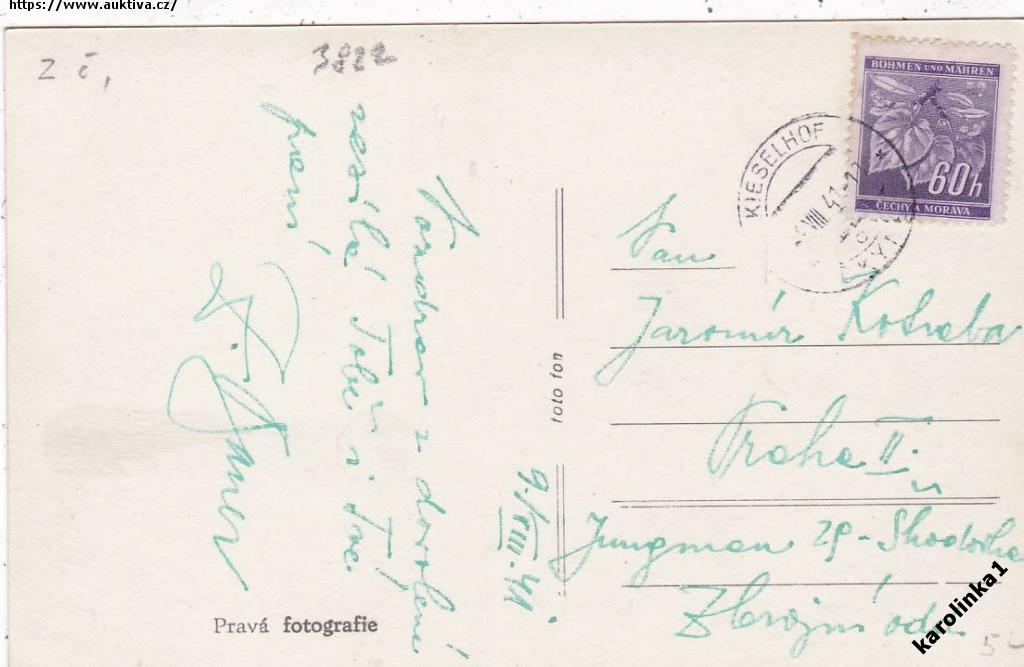 https://www.auktiva.cz/
Z č,
3822
Pozdrav z dovolené
zasílá Tobě i Tvé
paní
9./VIII.41
foto fon
Pravá fotografie
BÖHMEN UND MÄHREN
60h
ČECHY A MORAVA
KIESELHOF
VIII 41
Pan
Jaromír Kotrba
Praha II.
Jungman 29 - Škodovka
Zbrojní odd.
karolinka1
5-